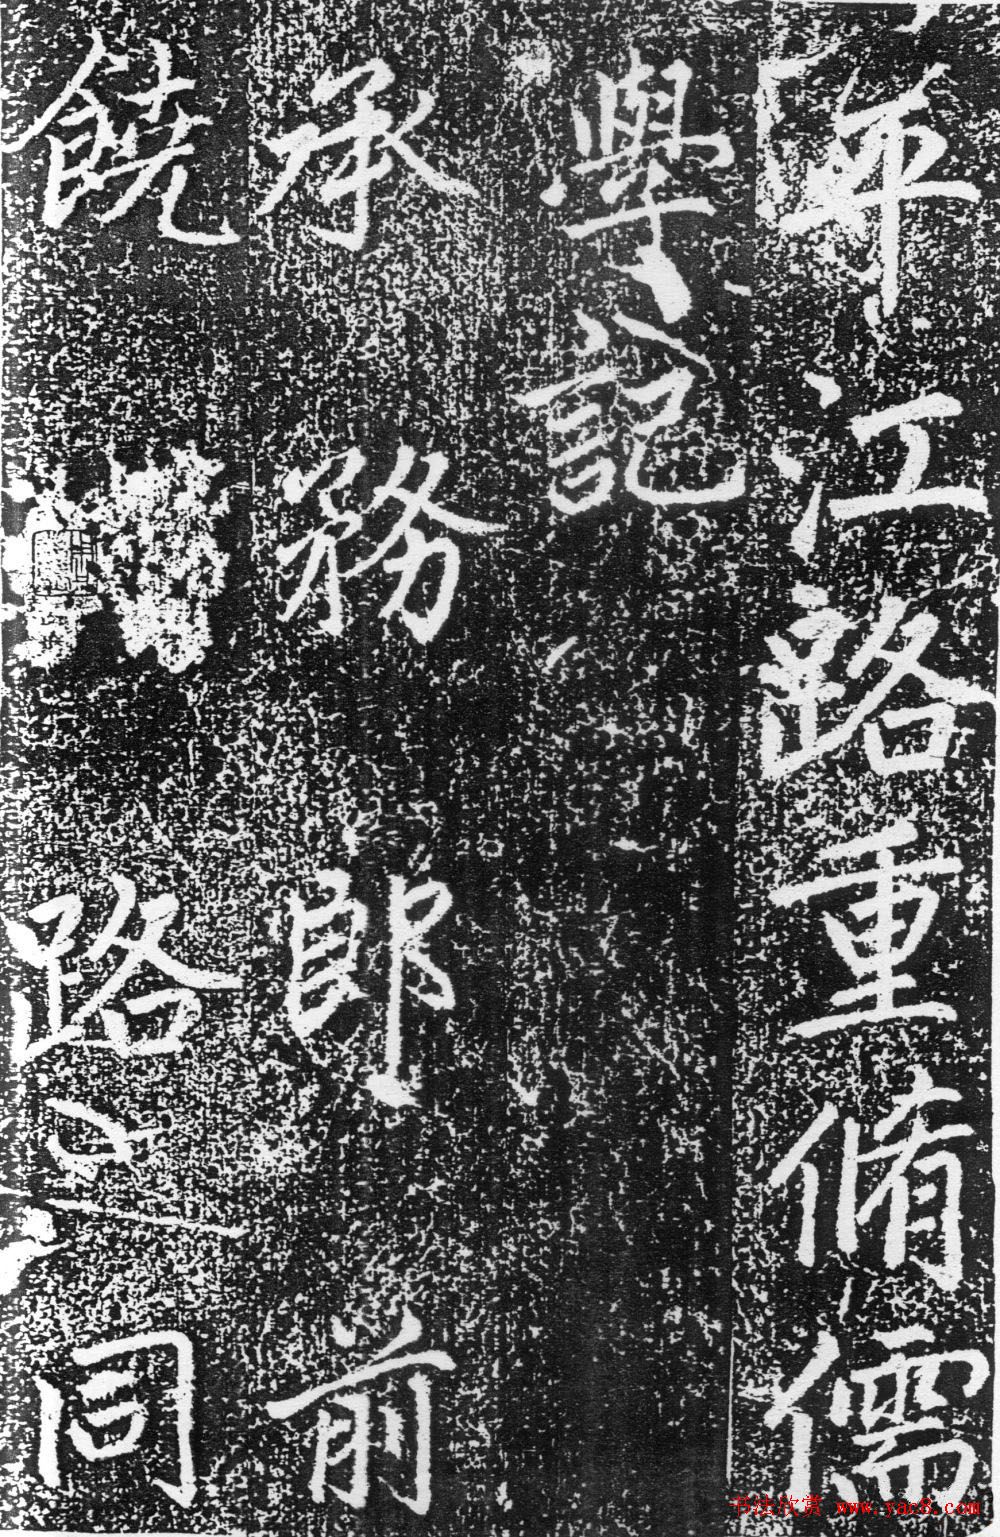 平江路重脩儒
學記
承務郎前
饒路之同
书法欣赏 www.yac8.com